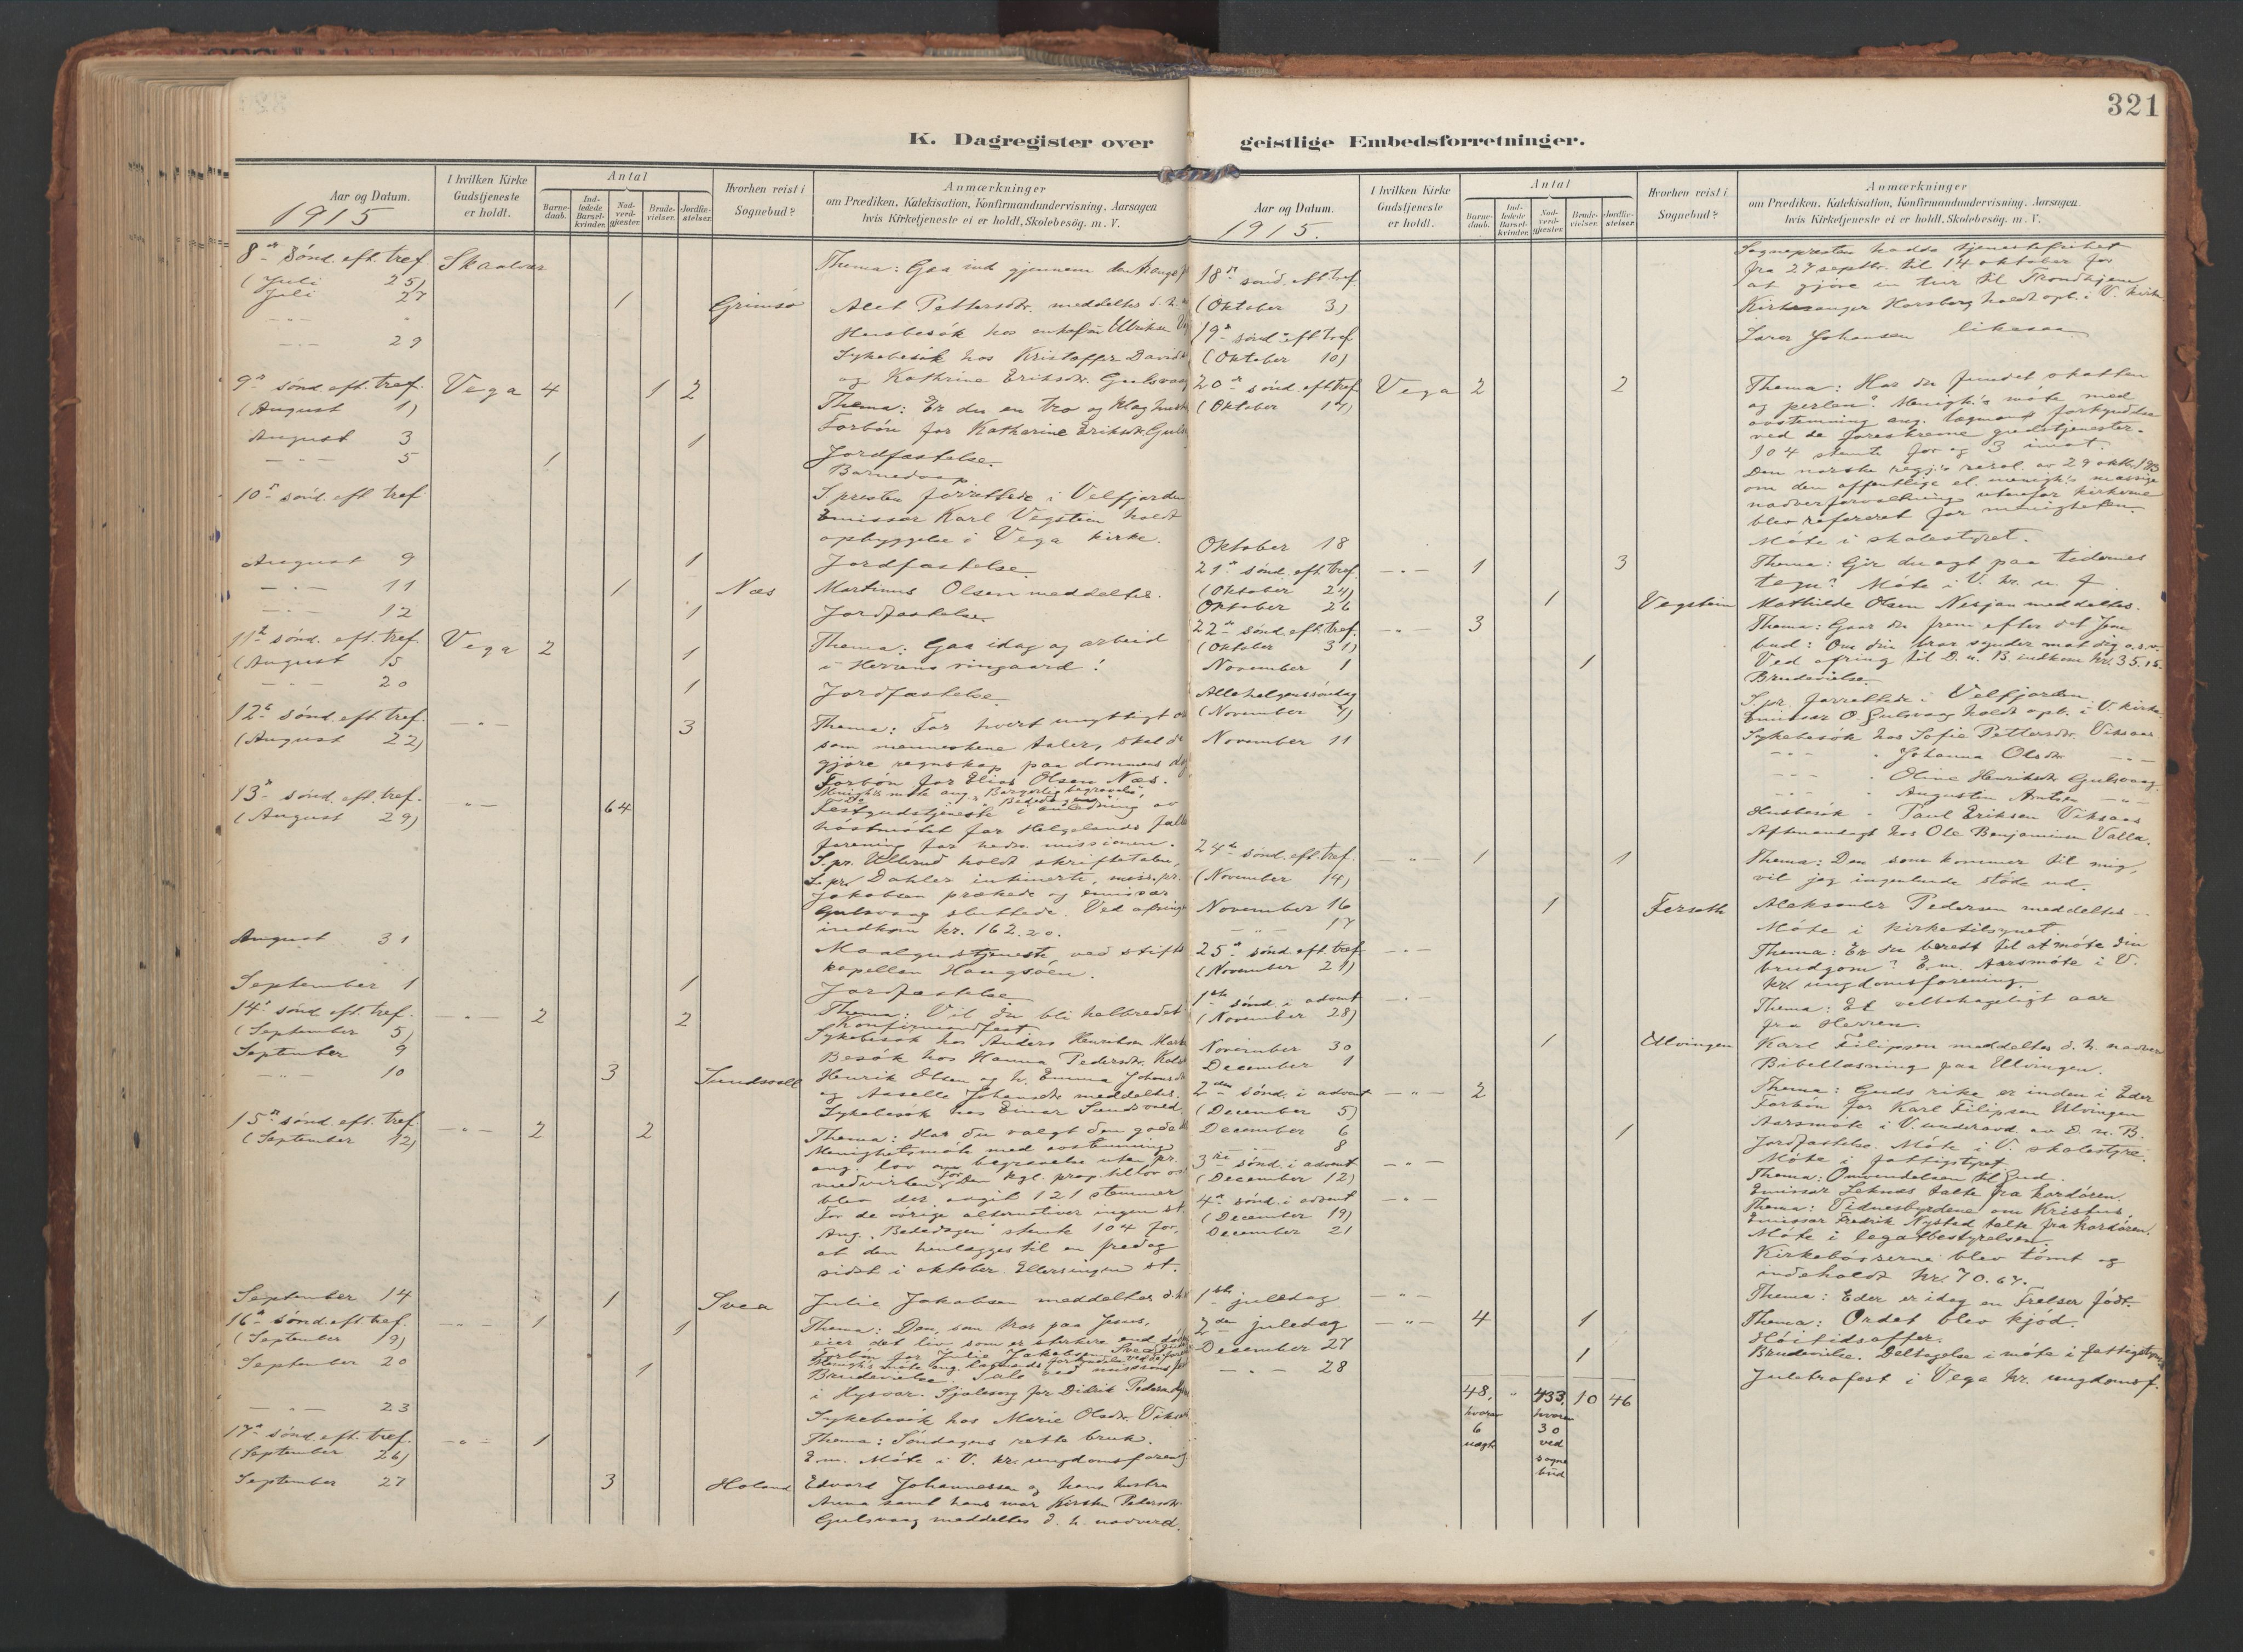 321
K. Dagregister over
Aar og Datum.
1915
I hvilken Kirke Gudstjeneste er holdt.
Antal
Barne-daab.
Ind-ledede Barsel-kvinder.
Nad-verd-gjester.
Brude-vielser.
Jordfæ-stelser.
Hvorhen reist i Sognebud?
Anmærkninger
om Prædiken, Katekisation, Konfirmandundervisning. Aarsagen
hvis Kirketjeneste ei er holdt, Skolebesög. m. V.
8de sønd. eft. tref. Skaalvær Thema: Gaa ind gjennem den
(Juli 25)
Juli 27 1 Grimsø Alet Pettersdtr. meddeltes d. h.
Husbesøk hos enkefru Ulriksen
29 Sykebesøk hos Kristoffer David
og Kathrine Eriksdtr. Gulsvaag
9de sønd. eft. tref. Vega 4 1 2 Thema: Er du en tro og klog
(August 1) Forbøn for Katharine Eriksdtr.
August 3 1 Jordfæstelse.
5 1 Barnedaap
10de sønd. eft. tref S. presten forrettede i Velfjorden
Emissær Karl Vegstein holdt
opbyggelse i Vega kirke.
August 9 1 Jordfæstelse
11 1 Næs Martinus Olsen meddeltes.
12 1 Jordfæstelse
11te sønd. eft. tref. Vega 2 1 Thema: Gaa idag og arbeid
(August 15 i Herrens vingaard!
20 1 Jordfæstelse
12te sønd. eft. tref. — " — 3 Thema: For hvert unyttigt
(August 22) som menneskene taler, skal de
gjøre regnskap paa dommens dag
Forbøn for Elias Olsen Næs.
Menigh.s møte ang. Borgerlig begravelse,
13de sønd. eft. tref. — " — 64 Festgudstjeneste i anledning av
(August 29) høstmøtet for Helgelands
forening for hedn. missionen.
S. pr. Ullerud holdt skriftetalen,
S. pr. Dahler intimerte, miss. pr.
Jakobsen prækede og emissær
Gulsvaag sluttede. Ved ofringen
indkom kr. 162.20.
August 31 Maalgudstjeneste ved stifts
kapellan Haugsøen.
September 1 1 Jordfæstelse
14de sønd. eft. tref. — " — 2 2 Thema: Vil du bli helbredet
(September 5) Konfirmandfest
September 9 Sykebesøk hos Anders Henriksen
Besøk hos Hanna Pedersdtr.
10 3 Sundsvoll Henrik Olsen og h. Emma Johansdtr
og Aaselle Johansdtr meddeltes.
Sykebesøk hos Einar Sundsvold.
15de sønd. eft. tref. — " — 2 2 Thema: Har du valgt den gode
(September 12) Menighetsmøte med avstemning
ang. lov om begravelse uten pr.
medvirkning. For Den kgl. prop. til lov
blev der avgit 121 stemmer
For de øvrige alternativer ingen st.
Ang. "Bededagen" stemte 104 for,
at den henlægges til en fredag
sidst i oktober. Ellers ingen st.
September 14 1 Svea Julie Jakobsen meddeltes d. h.
16de sønd. eft. tref. — " — 1 1 Thema: Den, som tror paa Jesus,
(September 19) eier det liv som er sterkere end
Forbøn for Julie Jakobsen Svea
September 20 1 Brudevielse. Tale ved
i Hysvær. Sjælesorg for Didrik Pedersen
23 Sykebesøk hos Marie Olsdtr.
17de sønd. eft. tref. — " — 1 Thema: Søndagens rette bruk.
(September 26) E. m. Møte i V. kr. ungdomsforening
September 27 3 Holand Edvard Johannessen og hans hustru
Anna samt hans mor Kirsten Pedersdtr.
Gulsvaag meddeltes d. h. nadverd.
geistlige Embedsforretninger.
Aar og Datum.
1915.
I hvilken Kirke Gudstjeneste er holdt.
Antal
Barne-daab.
Ind-ledede Barsel-kvinder.
Nad-verd-gjester.
Brude-vielser.
Jordfæ-stelser.
Hvorhen reist i Sognebud?
Anmærkninger
om Prædiken, Katekisation, Konfirmandundervisning. Aarsagen
hvis Kirketjeneste ei er holdt, Skolebesög. m. V.
Sognepresten hadde tjenestefrihet
18de sønd. eft. tref. fra 27 septbr. til 14 oktober for
at gjøre en tur til Trondhjem
(Oktober 3) Kirkesanger Horsberg holdt opb. i V. kirke
19de sønd. eft. tref Lærer Johansen likesaa
(Oktober 10)
20de sønd. eft. tref Vega 2 2 Thema: Har du fundet skatten
(Oktober 17) og perlen? Menigh.s møte med
avstemning ang. lægmands forkyndelse
ved de foreskrevne gudstjenester.
104 stemte for og 3 imot.
Den norske regj.s resol. av 29 oktbr. 1913
om den offentlige el. menigh.s mæssige
nadverforvaltning utenfor kirkerne
blev refereret for menigheten.
Oktober 18 Møte i skolestyret.
21de sønd. eft. tref. — " — 1 3 Thema: Gir du agt paa tidernes
(Oktober 24) tegn? Møte i V. kr. u. f.
Oktober 26 1 Vegstein Mathilde Olsen Nesjan meddeltes.
22de sønd. eft. tref. — " — 3 Thema: Gaar du frem efter det Jesu
(Oktober 31) bud: Om din bror synder mot dig o.s.v.
Ved ofring til D. u. B. indkom kr. 35.15.
November 1 1 Brudevielse
Allehelgenssøndag S. pr. forrettede i Velfjorden
(November 7) Emissær O. Gulsvaag holdt opb. i V. kirke.
November 11 Sykebesøk hos Sofie Pettersdtr. Viksaas
— " — Johanna Olsdtr — " —
— " — Oline Henriksdtr Gulsvaag
— " — Augustin Arntsen — " —
Husbesøk - Paul Eriksen Viksaas
Aftenandagt hos Ole Benjaminsen Valla.
24de sønd. eft. tref. — " — 1 1 Thema: Den som kommer til mig,
(November 14) vil jeg ingenlunde støte ud.
November 16 1 Fersæth Aleksander Pedersen meddeltes
17 Møte i kirketilsynet.
25de sønd. eft. tref. — " — Thema: Er du beredt til at møte din
(November 21) brudgom? E. m. Aarsmøte i V.
kr. ungdomsforening.
1ste sønd. i advent — " — Thema: Et velbehageligt aar
(November 28) fra Herren.
November 30 1 Ulvingen Karl Filipsen meddeltes d. h. nadver
December 1 Bibellæsning paa Ulvingen.
2den sønd. i advent — " — 2 Thema: Guds rike er inden i Eder
(December 5) Forbøn for Karl Filipsen Ulvingen
December 6 Aarsmøte i V. underavd. av D. u. B.
8 1 Jordfæstelse. Møte i V. skolestyre.
Møte i fattigstyret.
3die sønd. i advent — " — Thema: Omvendelsen til Gud.
(December 12) Emissær Leknes talte fra kordøren.
4de sønd. i advent — " — Thema: Vidnesbyrdene om Kristus.
(December 19) Emissær Fredrik Nystad talte fra kordøren.
December 21 Møte i legatbestyrelsen
Kirkebøsserne blev tømt og
indeholdt kr. 70.67.
1ste juledag — " — Thema: Eder er idag en Frelser født.
2den juledag — " — 4 1 Thema: Ordet blev kjød.
Høitidsoffer.
Desember 27 1 Brudevielse. Deltagelse i møte i fattigstyret
— " — 28 Juletræfest i Vega kr. ungdomsf.
48, " 433, 10 46
hvorav hvorav
6 30
uægte ved
sogne
bud